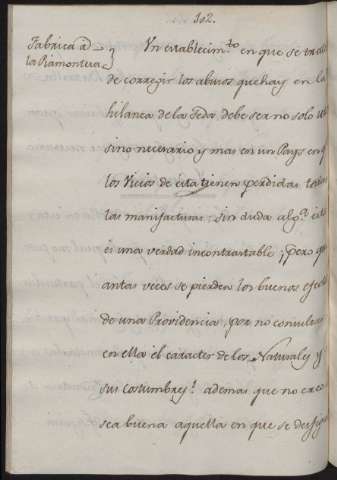 102.
Fabrica a
la Piamontesa
Un establecim.to en que se trate
de corregir los abusos que hay en la
hilanza de la Seda debe ser no solo util
sino necesario y mas en un Pays en q
los Vicios de esta tienen perdidas todas
las manifacturas; sin duda alg.a esta
es una verdad incontrastable; pero qu
antas veces se pierden los buenos efectos
de una Providencia, por no consultar
en ella el caracter de los Naturales y
sus costumbres! ademas que no creo
sea buena aquella en que se